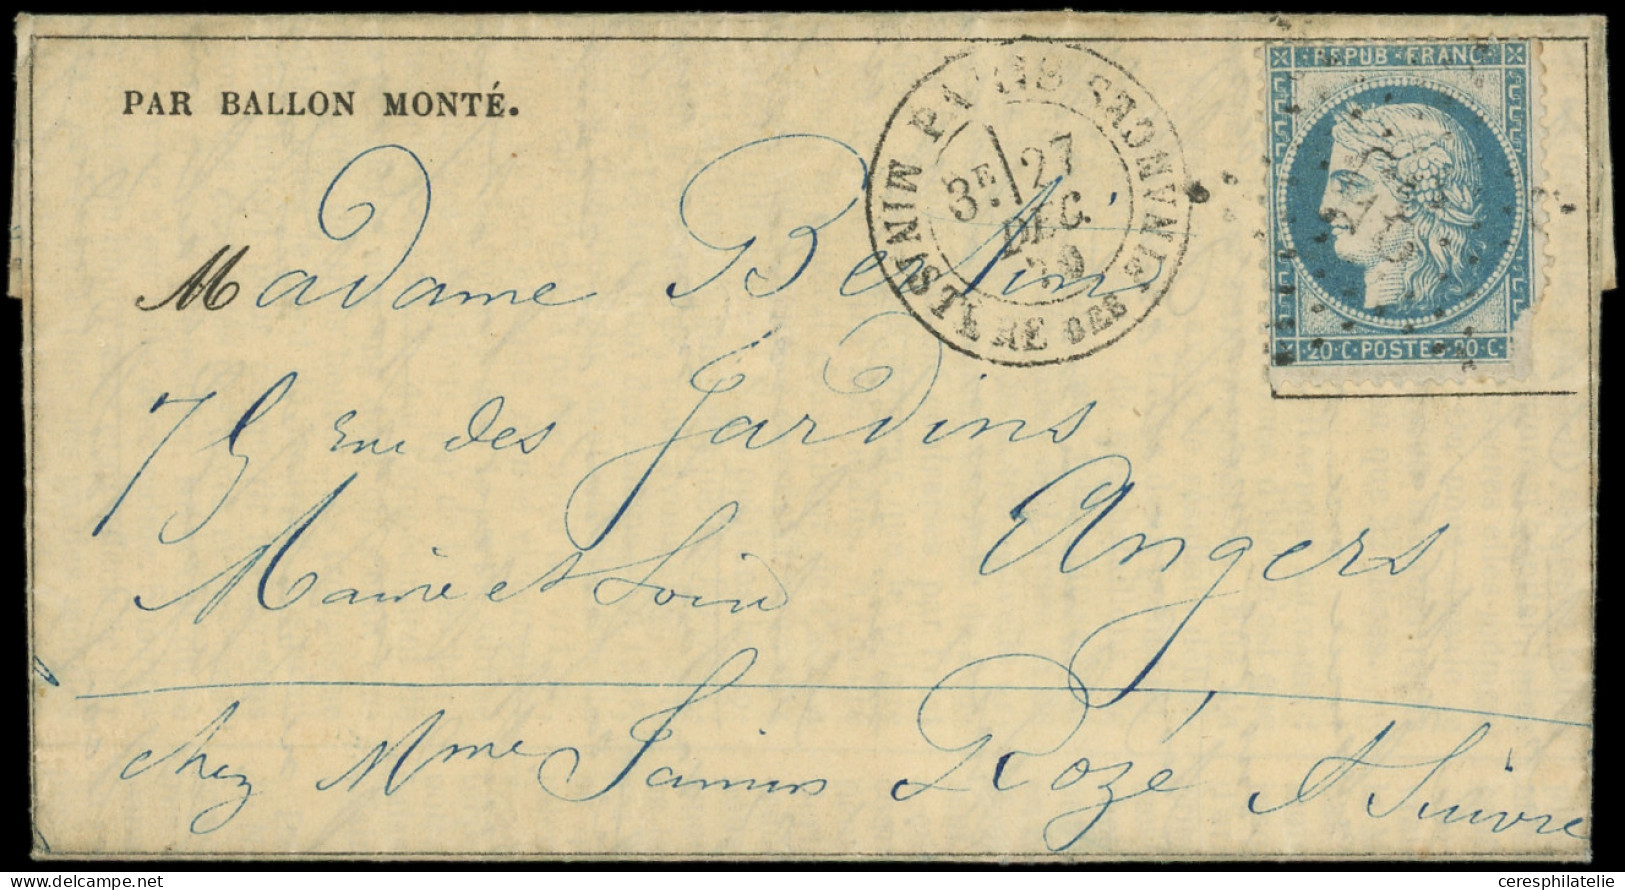 PAR BALLON MONTÉ.
PARIS MINISTERE DES FINANCES
3E. 27
DÉC.
70
REPUB·FRANC
20·C·POSTE·20·C
Madame Bertin
75 rue des Jardins
Angers
Maine et Loire
chez Mme Janin Rozé à Suivre
ceresphilatelie